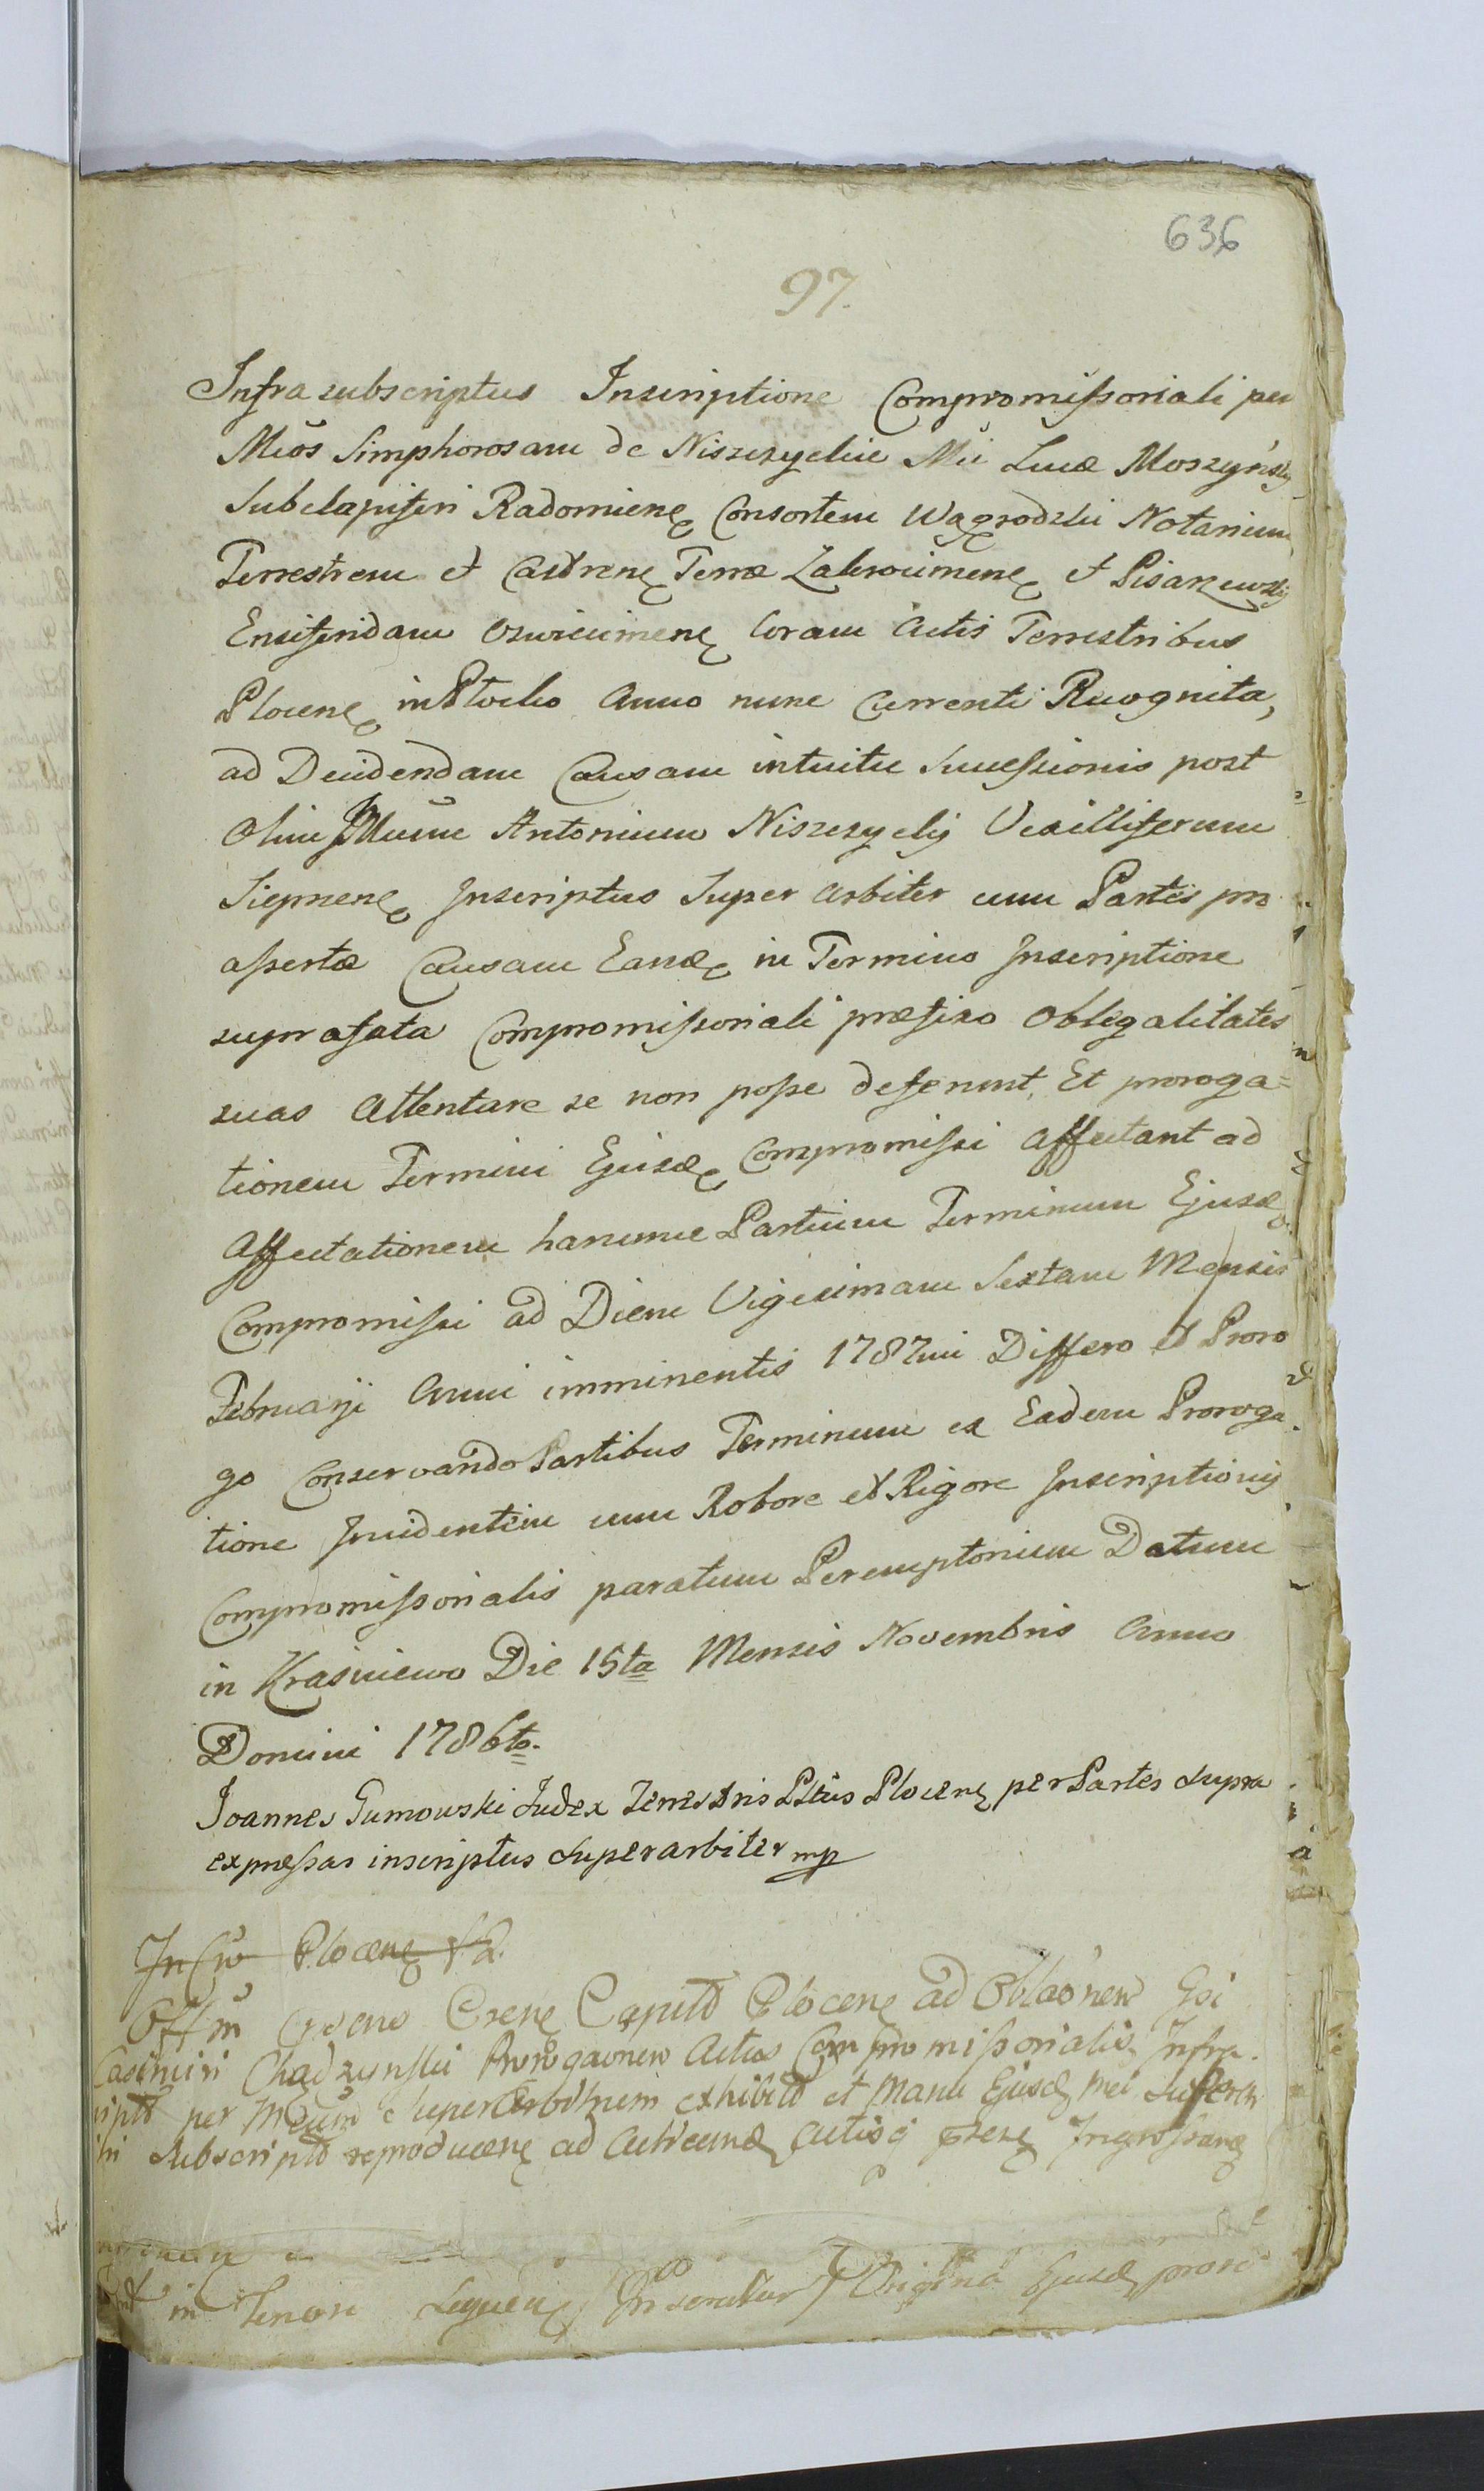 636
97.
Infra subscriptus Inscriptione Compromissoriali per
Mẽos Simphorosam de Niszczyckie Mĩi Lucæ Moszyński
Subdapiferi Radomiens Consortem Wągrodzki Notarium
Terrestrem et Castrens Terræ Zakrocimens et Pisarzewski
Ensiferidam Oswiecimens Coram Actis Terrestribus
Plocens in Plocko Anno nunc Currenti Recognita,
ad Decidendam Causam intuitu Successionis post
Olim Mũum Antonium Niszczycky Vexilliferum
Sieprcens Inscriptus Super Arbiter cum Partes pro
assertæ Causam Eand in Termino Inscriptione
suprafata Compromissoriali præfixo Oblegalitates
suas Attentare se non posse deferunt, Et proroga=
tionem Termini Ejusd Compromissi Affectant ad
Affectationem harumce Partium Terminum Ejusd
Compromissi ad Diem Vigesimam Sextam Mensis
Februarii Anni imminentis 1787mi Differo et Proro
go Conservando Partibus Terminum ex Eadem Proroga
tione Incidentem cum Robore et Rigore Inscriptionis
Compromissorialis paratum Peremptorium Datum
in Kraśniewo Die 15ta Mensis Novembris Anno
Domini 1786to.
Joannes Gumowski Judex Terrestris Pltũs Plocens per Partes supra
expressas inscriptus Superarbiter mp
In Plocens
Off Capitl Plocens ad Oblaõnem Gsi
Casimiri Chądzyński Prorogaõnem Actus Compromissorialis Infra
per Mũum Superarbitrum exhibitt et Manu Ejusd
Subscriptt reproducens ad Acticand Actisq Ingrossand
in Tenor Sequens Inseratur Origina Ejusd